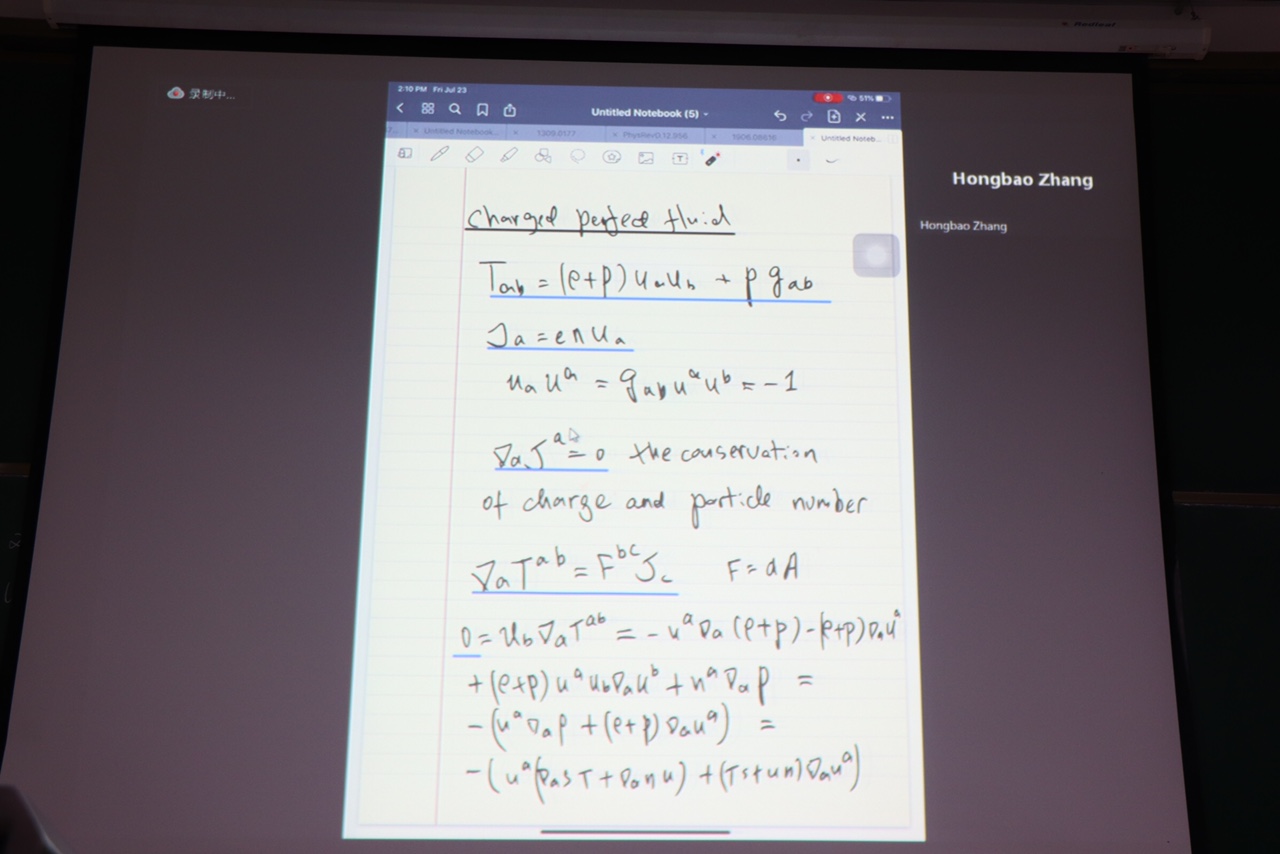 Redleaf
录制中...
2:10 PM Fri Jul 23
51%
Untitled Notebook (5)
Untitled Notebook...
1309.0177
PhysRevD.12.956
Untitled Noteb...
Hongbao Zhang
Hongbao Zhang
Charged perfect fluid
T_ab = (ρ+p) u_a u_b + p g_ab
J_a = e n u_a
u_a u^a = g_ab u^a u^b = -1
∇_a J^a = 0 the conservation
of charge and particle number
∇_a T^ab = F^bc J_c F = dA
0 = u_b ∇_a T^ab = - u^a ∇_a (ρ+p) - (ρ+p) ∇_a u^a
+ (ρ+p) u^a u_b ∇_a u^b + u^a ∇_a p =
- (u^a ∇_a ρ + (ρ+p) ∇_a u^a) =
- (u^a (∇_a s T + ∇_a n u) + (Ts + un) ∇_a u^a)